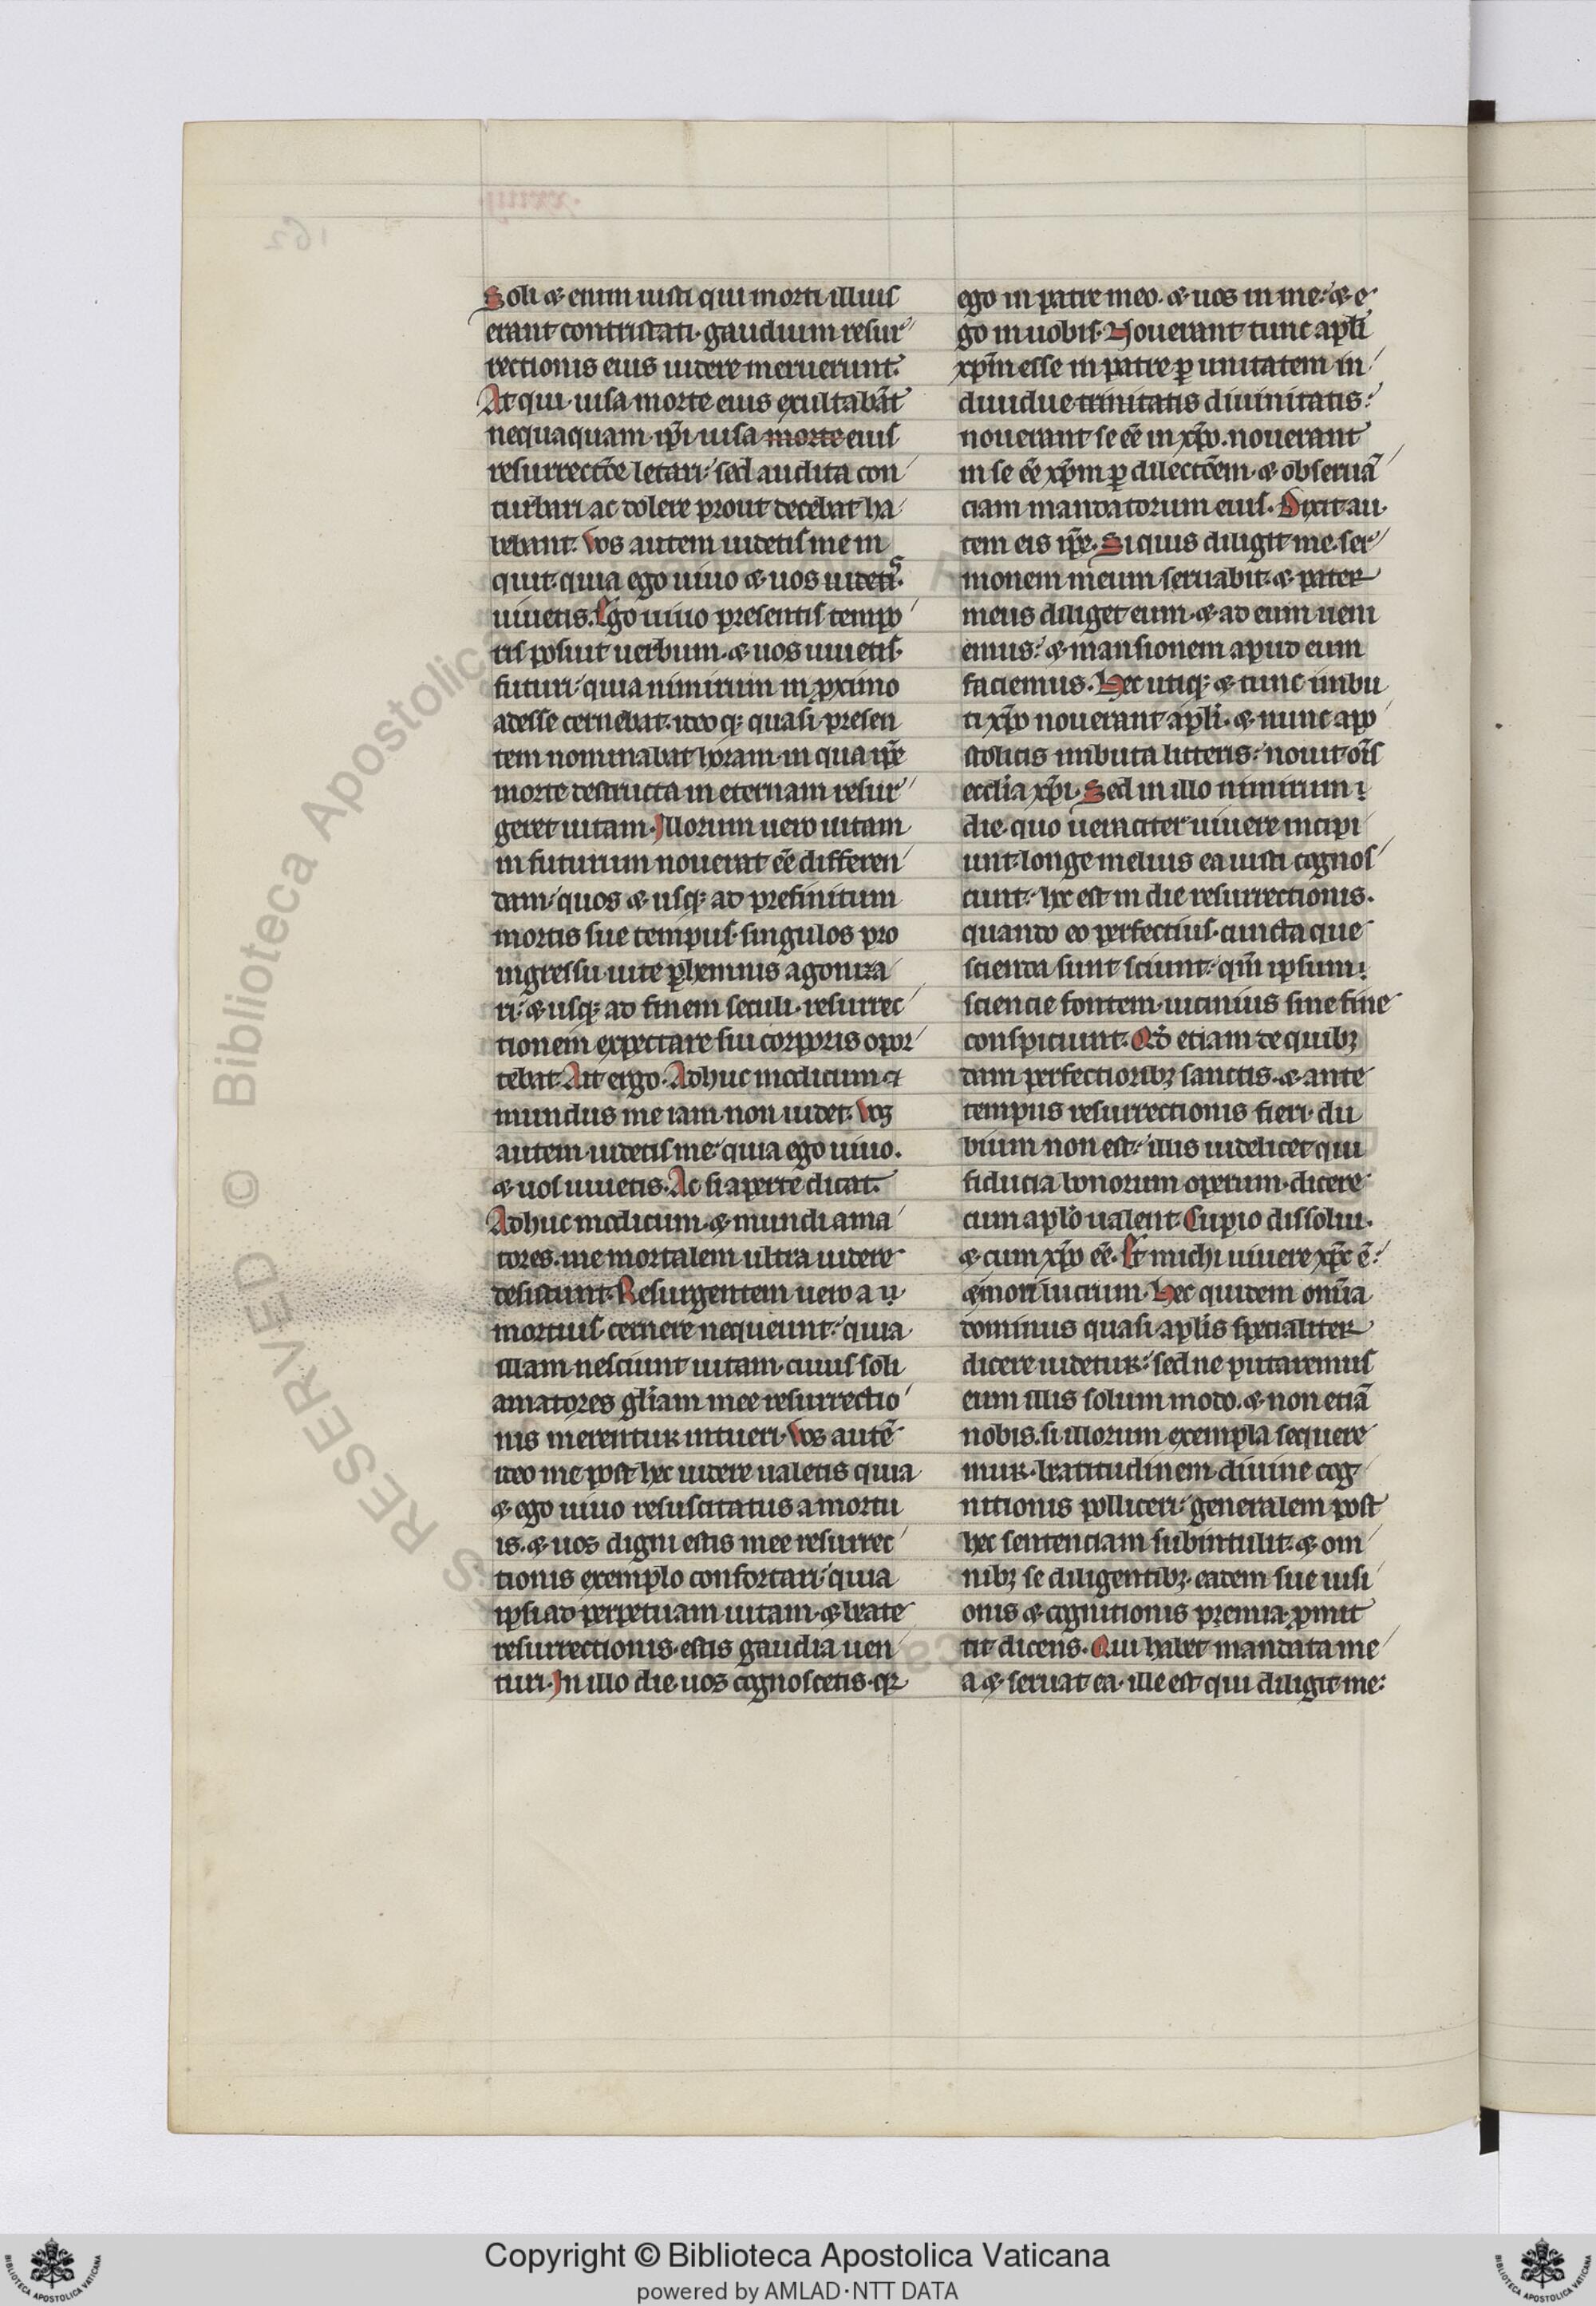 Soli & enim iusti qui morti illius
erant contristati· gaudium resur
rectionis eius uidere meruerunt.
At qui uisa morte eius exultabāt
nequaquam ip̄i uisa morte eius
resurrectōe letari· sed audita con
turbari ac dolere prout decebat ha
bebant. Vos autem uidetis me in
quit· quia ego uiuo & uos uideti^s.
uiuetis. Ego uiuo presentis tempo
ris posuit uerbum· & uos uiuetis·
futuri· quia nimirum in ꝓximo
adesse cernebat· ideo qꝫ quasi presen
tem nominabat horam· in qua ip̄e
morte destructa in eternam resur
geret uitam· Illorum uero uitam
in futurum nouerat eē differen
dam· quos & usqꝫ ad prefinitum
mortis sue tempus· singulos pro
ingressu uite ꝑhennis agoniza
ri· & usqꝫ ad finem seculi· resurrec
tionem expectare sui corporis opor
tebat· Ait ergo· Adhuc modicum &
mundus me iam non uidet· Vos
autem uidetis me· quia ego uiuo.
& uos uiuetis. Ac si aperte dicat.
Adhuc modicum· & mundi ama
tores· me mortalem ultra uidere
desistunt· Resurgentem uero a
mortuis cernere nequeunt· quia
illam nesciunt uitam· cuius soli
amatores gl̄iam mee resurrectio
nis merentur intueri· Vos autē
ideo me post hec uidere ualetis quia
& ego uiuo resuscitatus a mortu
is· & uos digni estis mee resurrec
tionis exemplo confortari· quia
ipsi ad perpetuam uitam· & beate
resurrectionis· estis gaudia uen
turi· In illo die uos cognoscetis· qꝛ
ego in patre meo· & uos in me· & e
go in uobis· Nouerant tunc apl̄i
xp̄m esse in patre ꝑ unitatem in
diuidue trinitatis diuinitatis·
nouerant se eē in xp̄o· nouerant
in se eē xp̄m ꝑ dilectōem· & obseruā
ciam mandatorum eius. Dixit au
tem eis ip̄e· Si quis diligit me· ser
monem meum seruabit· & pater
meus diliget eum· & ad eum ueni
emus· & mansionem apud eum
faciemus. Hec utiqꝫ & tunc imbu
ti xp̄o nouerant apl̄i· & nunc apo
stolicis imbuta litteris· nouit oīs
eccl̄ia xp̄i· Sed in illo nimirum
die· quo ueraciter uiuere incipi
unt· longe melius ea iusti cognos
cunt· hoc est in die resurrectionis.
quando eo perfectius· cuncta que
scienda sunt sciunt· qm̄ ipsum
sciencie fontem· uicinius sine fine
conspiciunt. Qd̄ etiam de quibꝫ
dam perfectioribꝫ sanctis· & ante
tempus resurrectionis fieri· du
bium non est· illis uidelicet qui
fiducia bonorum operum· dicere
cum apl̄o ualent· Cupio dissolui·
& cum xp̄o eē· Et michi uiuere xp̄c ē·
& mori lucrum· Hec quidem om̄ia
dominus quasi apl̄is specialiter
dicere uidetur· sed ne putaremus
eum illis solum modo· & non etiā
nobis· si illorum exempla sequere
mur· beatitudinem diuine cog
nitionis polliceri· generalem post
hec sentenciam subintulit· & om
nibꝫ se diligentibꝫ· eadem sue uisi
onis & cognitionis premia ꝓmit
tit dicens· Qui habet mandata me
a & seruat ea· ille est qui diligit me·
162
© Biblioteca Apostolica
RESERVED
Copyright © Biblioteca Apostolica Vaticana
powered by AMLAD·NTT DATA
BIBLIOTECA APOSTOLICA VATICANA
BIBLIOTECA APOSTOLICA VATICANA